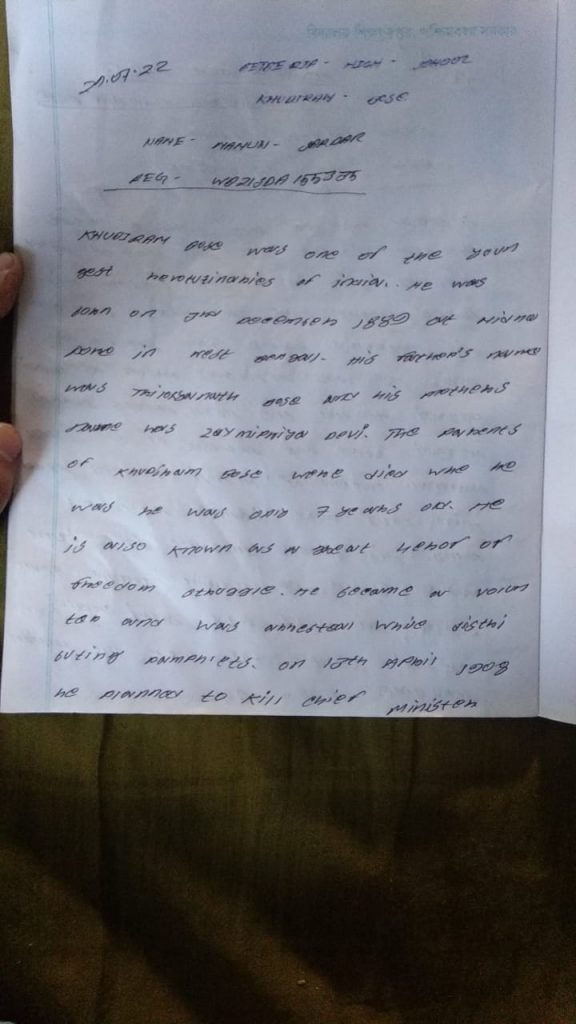 বিদ্যালয় শিক্ষা দপ্তর, পশ্চিমবঙ্গ সরকার
.07.22
HIGH - SCHOOL
KHUDIRAM - BOSE
NAME -
REG -
KHUDIRAM Bose was one of the youn
gest of india. He was
born on 3rd December 1889 at Midna
pore in West Bengal. His Father's name
was Bose and his mothers
name was Devi. The parents
of Khudiram Bose were died whe he
was he was only 7 years old. He
is also known as a great of
freedom struggle. He became a volun
ter and was arrested while distri
buting pamphlets. on April 1908
he planned to kill chief minister